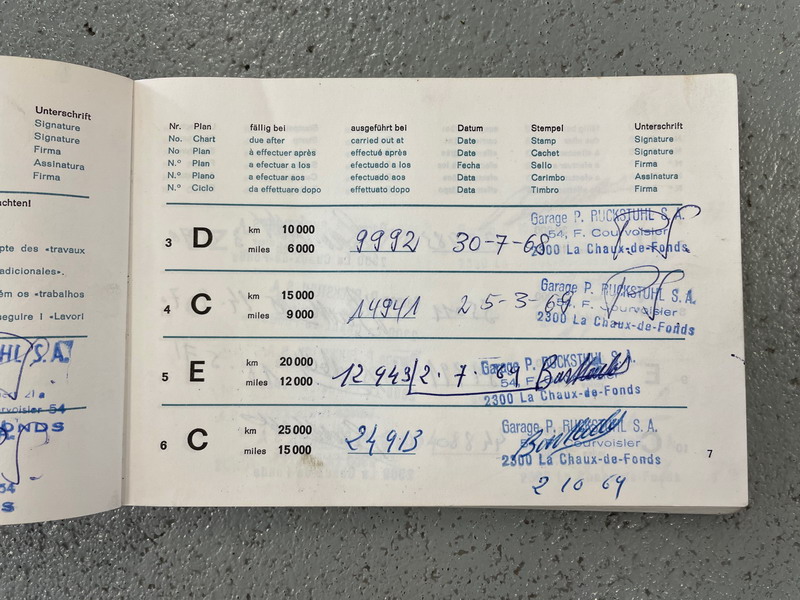 Unterschrift
Signature
Signature
Firma
Assinatura
Firma
achten!
pte des «travaux
adicionales».
ém os «trabalhos
seguire I «Lavori
HL S.A.
rvoisier 54
ONDS
54
S
Nr. Plan fällig bei ausgeführt bei Datum Stempel Unterschrift
No. Chart due after carried out at Date Stamp Signature
No Plan à effectuer après effectué après Date Cachet Signature
N.º Plan a efectuar a los efectuado a los Fecha Sello Firma
N.º Plano a efectuar aos efectuado aos Data Carimbo Assinatura
N.º Ciclo da effettuare dopo effettuato dopo Data Timbro Firma
3 D km 10 000 miles 6 000 9992 30-7-68
Garage P. RUCKSTUHL S.A.
54, F. Courvoisier
2300 La Chaux-de-Fonds
4 C km 15 000 miles 9 000 14941 25-3-69
Garage P. RUCKSTUHL S.A.
54, F. Courvoisier
2300 La Chaux-de-Fonds
5 E km 20 000 miles 12 000 12943 2.7.69
Garage P. RUCKSTUHL S.A.
54, F.
2300 La Chaux-de-Fonds
6 C km 25 000 miles 15 000 24913
Garage P. RUCKSTUHL S.A.
Courvoisier
2300 La Chaux-de-Fonds
2 10 69
7